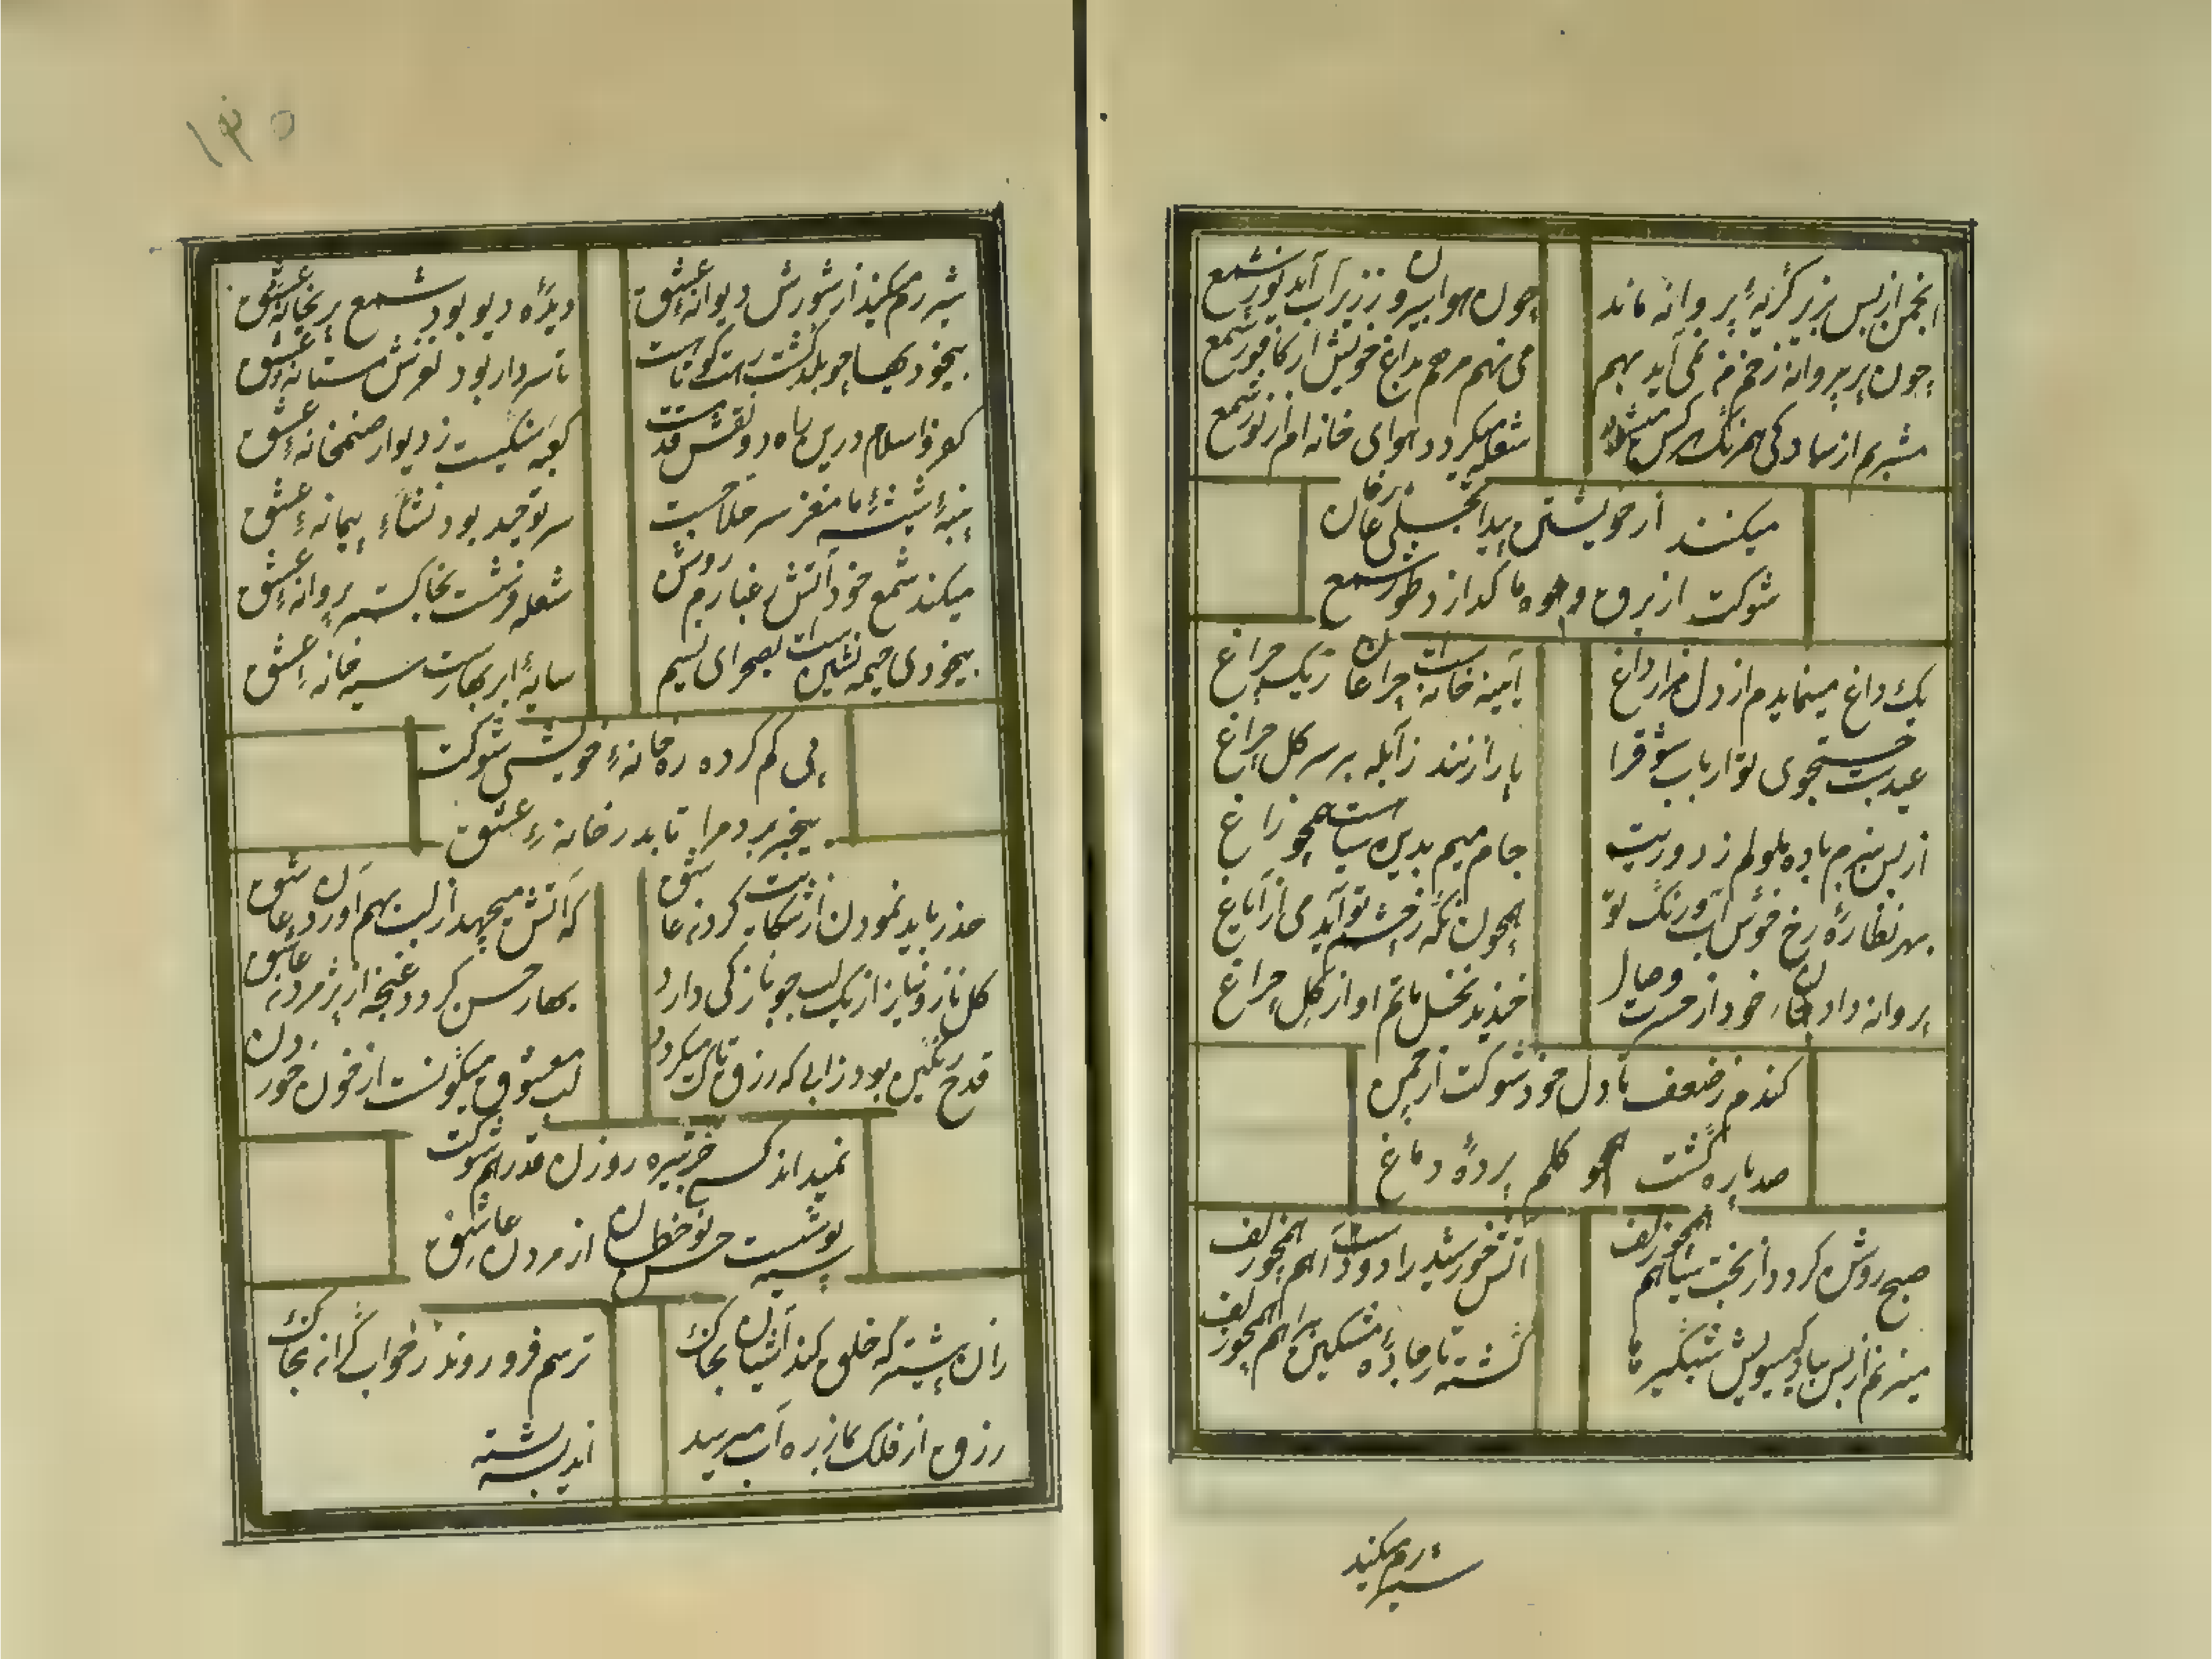 انجمن از بس پر ز گریهٔ پروانه ماند
چون هوا بیرون ز زیر آب آید نور شمع
چون پر پروانه زخم من نمی آید بهم
می نهم مرهم بداغ خویش از کافور شمع
مشربم از سادگی همرنگ هر کس میشود
شعله میگردد هوای خانه ام از نور شمع
میکنند از خویشتن پیدا تجلی عارفان
شوکت از برق وجوه ما گدازد طور شمع
یک داغ مینمایدم از دل هزار داغ
آیینه خانه ایست چراغان ز یک چراغ
عیدست جستجوی تو ارباب شوق را
پا را زنند ز آبله بر سر گل چراغ
از بس ببزم باده ملولم ز دوریت
جام میم بدیده سیاهست همچو زاغ
بهر نظارهٔ رخ خوش آب و رنگ تو
همچون نگه ز چشم تو آید می از ایاغ
پروانه داد جان خود از حسرت وصال
خندید نخل ماتم او از گل چراغ
کندم ز ضعف تا دل خود شوکت از چمن
صد پاره گشت همچو گلم پردهٔ دماغ
صبح روشن گردد از بخت سیاهم همچو زلف
آتش خورشید را دودست آهم همچو زلف
میزنم از بس بیاد گیسویش شبگیرها
گشته تار جادهٔ مشکین براهم همچو زلف
شیر رم میکند
۱۳۵
شیر رم میکند از شورش دیوانهٔ عشق
دیدهٔ دیو بود شمع پریخانهٔ عشق
تا سردار بود لغزش مستانهٔ عشق
کفر و اسلام درین راه دو نقش قدمست
کعبه سنگیست ز دیوار صنمخانهٔ عشق
پنبهٔ شیشهٔ ما مغز سر حلاجست
سر توحید بود نشاء پیمانهٔ عشق
میکند شمع خود آتش ز غبارم روشن
شعله فرشست بخاکستر پروانهٔ عشق
بیخودی خیمه نشین است بصحرای نسیم
سایهٔ ابر بهارست سیه خانهٔ عشق
پی گم کرده ره خانهٔ خویشی شوکت
بیخبر برد مرا تا بدر خانهٔ عشق
حذر باید نمودن از شکایت کردن عاشق
که آتش میجهد از لب بهم آوردن عاشق
گل ناز و نیاز از یک لب جو نازکی دارد
بهار حسن گردد غنچه از پژمردن عاشق
قدح رنگین بود ز آبی که رزق تاک میگردد
لب معشوق میگونست از خون خوردن
نمیداند کسی جز تیره روزان قدر هم شوکت
سیه پوشست حسن نوخطان از مردن عاشق
زان پیشتر که خلق کند آشیان بخاک
ترسم فرو روند ز خواب گران بخاک
رزق از فلک بما ز ره آب میرسد
اندیشه